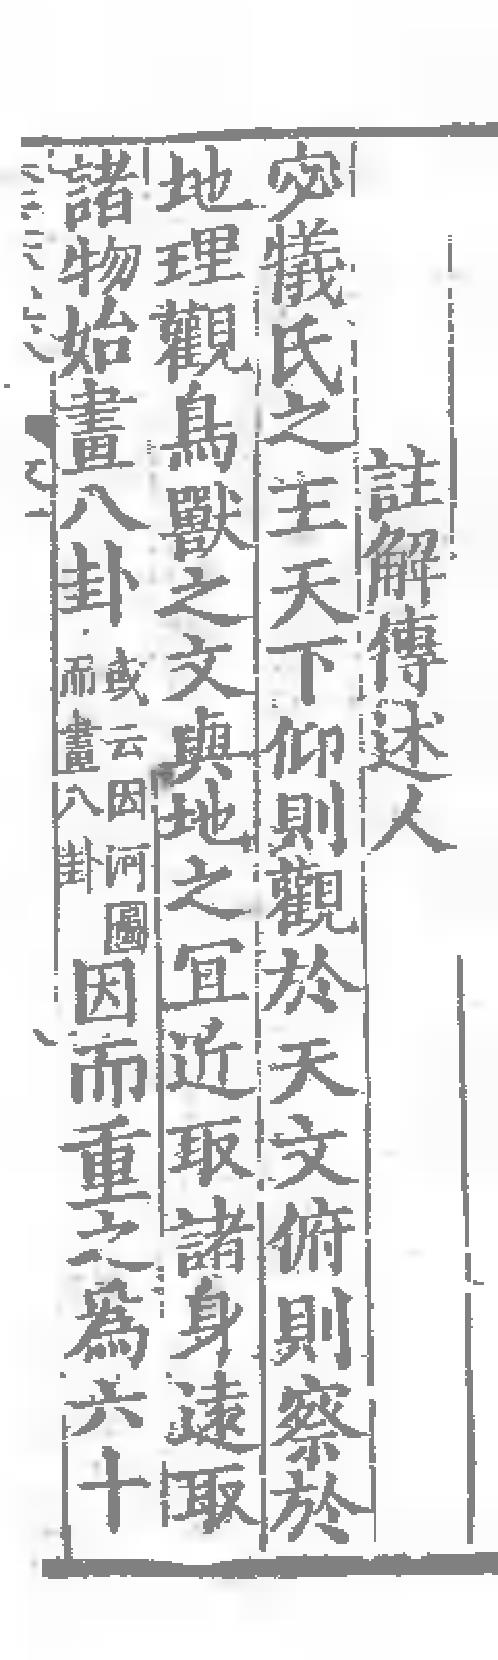 註解傳述人
宓犧氏之王天下仰則觀於天文俯則察於
地理觀鳥獸之文與地之冝近取諸身遠取
諸物始畫八卦或云因河圖而畫八卦因而重之爲六十